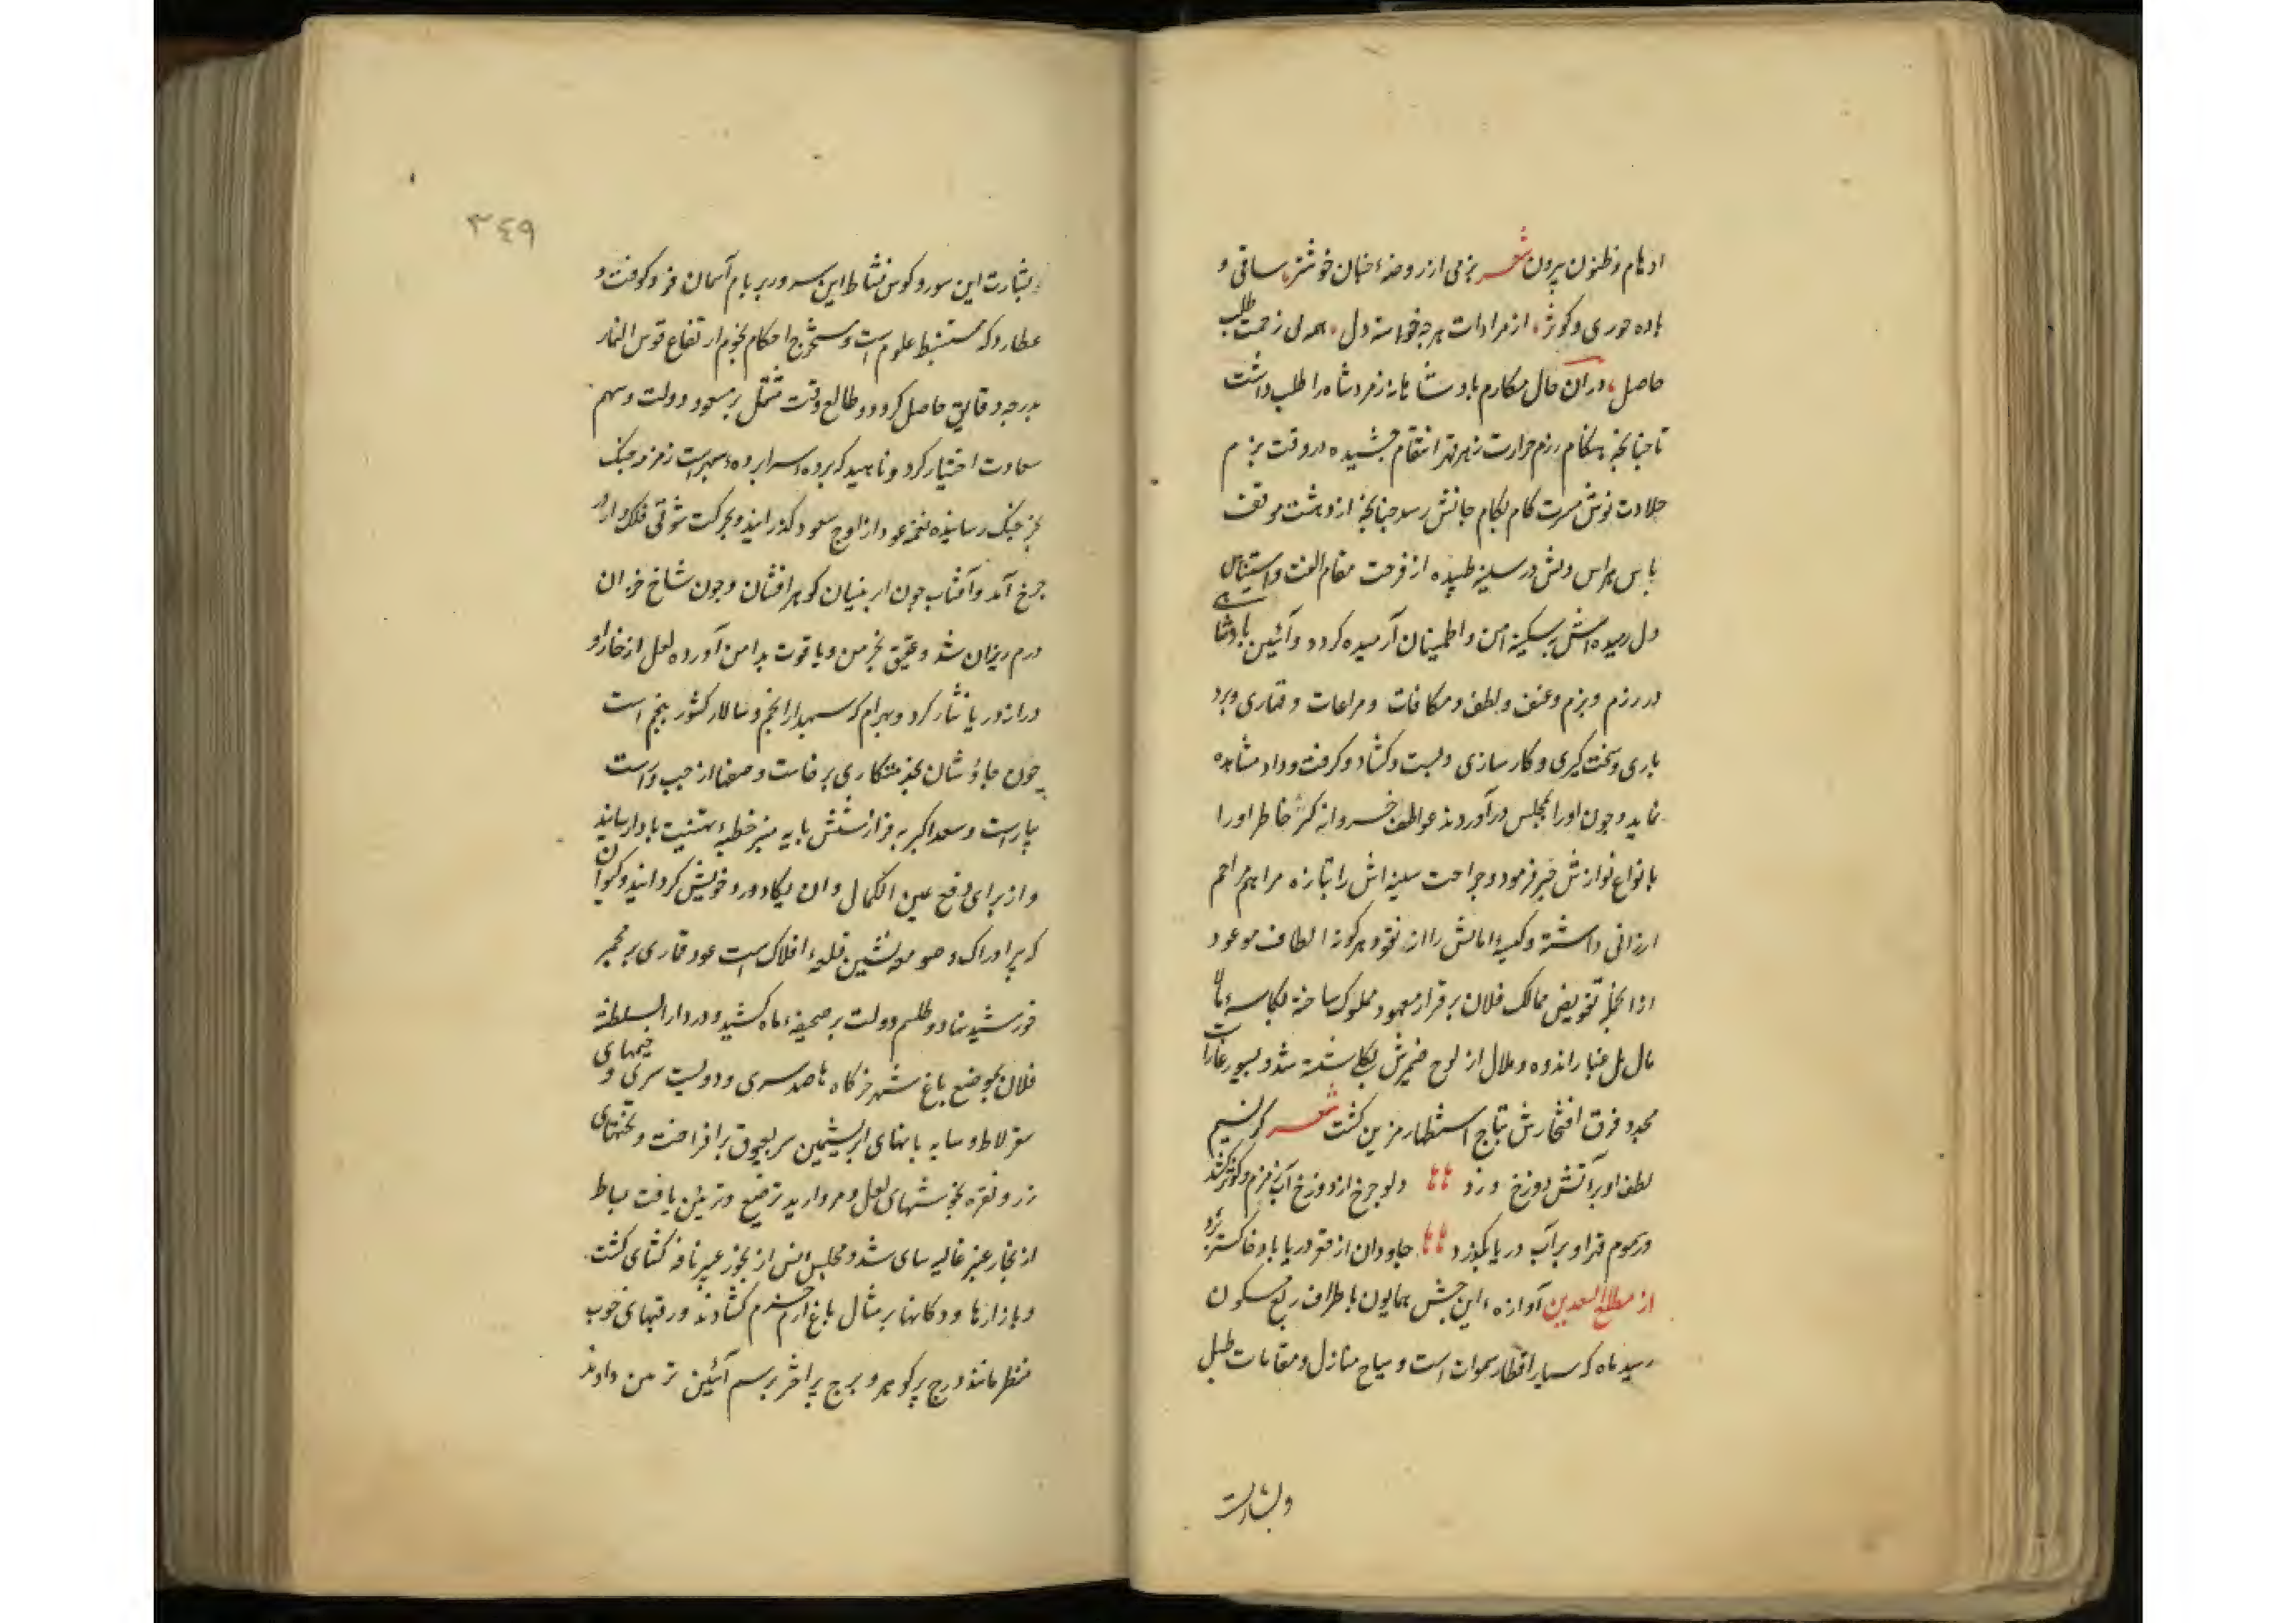 اوهام و ظنون بیرون شعر بزمی از روضهٔ جنان خوشتر، ساقی و
باده حوری و کوثر، از مرادات هرچه خواسته دل، همه بی زحمت طلب
حاصل، در آن حال مکارم پادشاهانه زمردشاه را طلب داشت
تا چنانچه هنکام رزم مرارت زهر قهر انتقام چشیده در وقت بزم
حلاوت نوش مسرت کام بکام جانش رسد چنانچه از دهشت موقف
باس هراس دلش در سینه طپیده از فرحت مقام الفت و استیناس
دل رمیده‌اش بسکینه امن و اطمینان آرمیده کردد و آئین پادشاهی
در رزم و بزم و عنف و لطف و مکافات و مراعات و قهاری و برد
باری و سخت کیری و کارسازی و بست و کشاد و کرفت و داد مشاهده
نماید و چون او را بمجلس در آوردند عواطف خسروانه خاطر او را
بانواع نوازش خبر فرمود و جراحت سینه‌اش را بتازه مراهم مراحم
ارزانی داشته و کیسهٔ امالش را از نقود هرکونه الطاف موعود
از انجمله تفویض ممالک فلان بر قرار معهود مملوک ساخته بکاسهٔ
مال مل غبار اندوه و ملال از لوح ضمیرش بکلی شسته شد و بسیورغارات
مجدد فرق افتخارش بتاج استظهار مزین کشت شعر کر نسیم
لطف او بر آتش دوزخ وزد دلو چرخ از دوزخ آب زمزم و کوثر کشد
ور سموم قهر او بر آب دریا بکذرد جاودان از قعر دریا باد خاکستر برد
از مطلع السعدین آوازهٔ این جشن همایون باطراف ربع مسکون
رسید ماه که سیار اقطار سموات است و سیاح منازل و مقامات طبل
و بشارت
۳٤۹
و بشارت این سور و کوس نشاط این سرور بر بام آسمان فرو کوفت و
عطارد که مستنبط علوم است و مستخرج احکام نجوم ارتفاع قوس النهار
بدرجه و دقایق حاصل کرد و طالع وقت مشتمل بر سعود دولت و سهم
سعادت اختیار کرد و ناهید که پرده اسرار پردهٔ سپهر است زمزمه چنک
بخرچنک رسانیده نغمه عود از اوج سعود کذرانید و بحرکت شوقی فلک وار در
چرخ آمد و آفتاب چون ابر نیسان کوهر افشان و چون شاخ خزان
درم ریزان شد و عقیق بخرمن و یاقوت بدامن آورده لعل از خارا و
در از دریا نثار کرد و بهرام که سپهدار انجم و سالار کشور پنجم است
چون چاوشان بخدمتکاری برخاست و صفها از چپ و راست
بیاراست و سعد اکبر به فراز شش پایه منبر خطبهٔ تهنیت بادا رسانید
و از برای دفع عین الکمال و ان یکاد ورد خویش کردانید و کیوان
که پیر ادراک و صومعه نشین قلعهٔ افلاک است عود قماری بر مجمر
خورشید نهاد و طلسم دولت بر صحیفهٔ ماه کشید و در دار السلطنه
فلان بموضع باغ شهر خرکاه‌ها صد سری و دویست سری و خیمهای
سقرلاط و سایه بانهای ابریشمین سر بعیوق برافراخت و تختهای
زر و نقره بخوشهای لعل و مروارید ترصیع و تزیین یافت بساط
از بخار عنبر غالیه سای شد و مجلس انس از بخور عبیر نافه کشای کشت
و بازارها و دکانها بر مثال باغ ارم خرم کشادند و رقبهای خوب
منظر مانند درج پر کوهر و برج پر اختر برسم آئین تزیین دادند